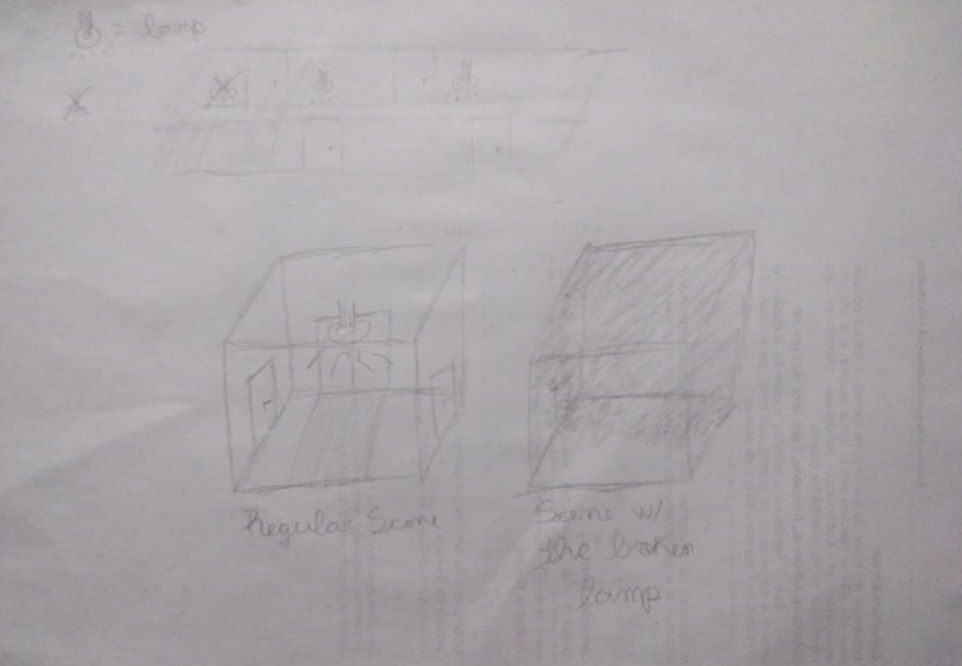 = lamp
Regular Scene
Scene w/
the broken
lamp